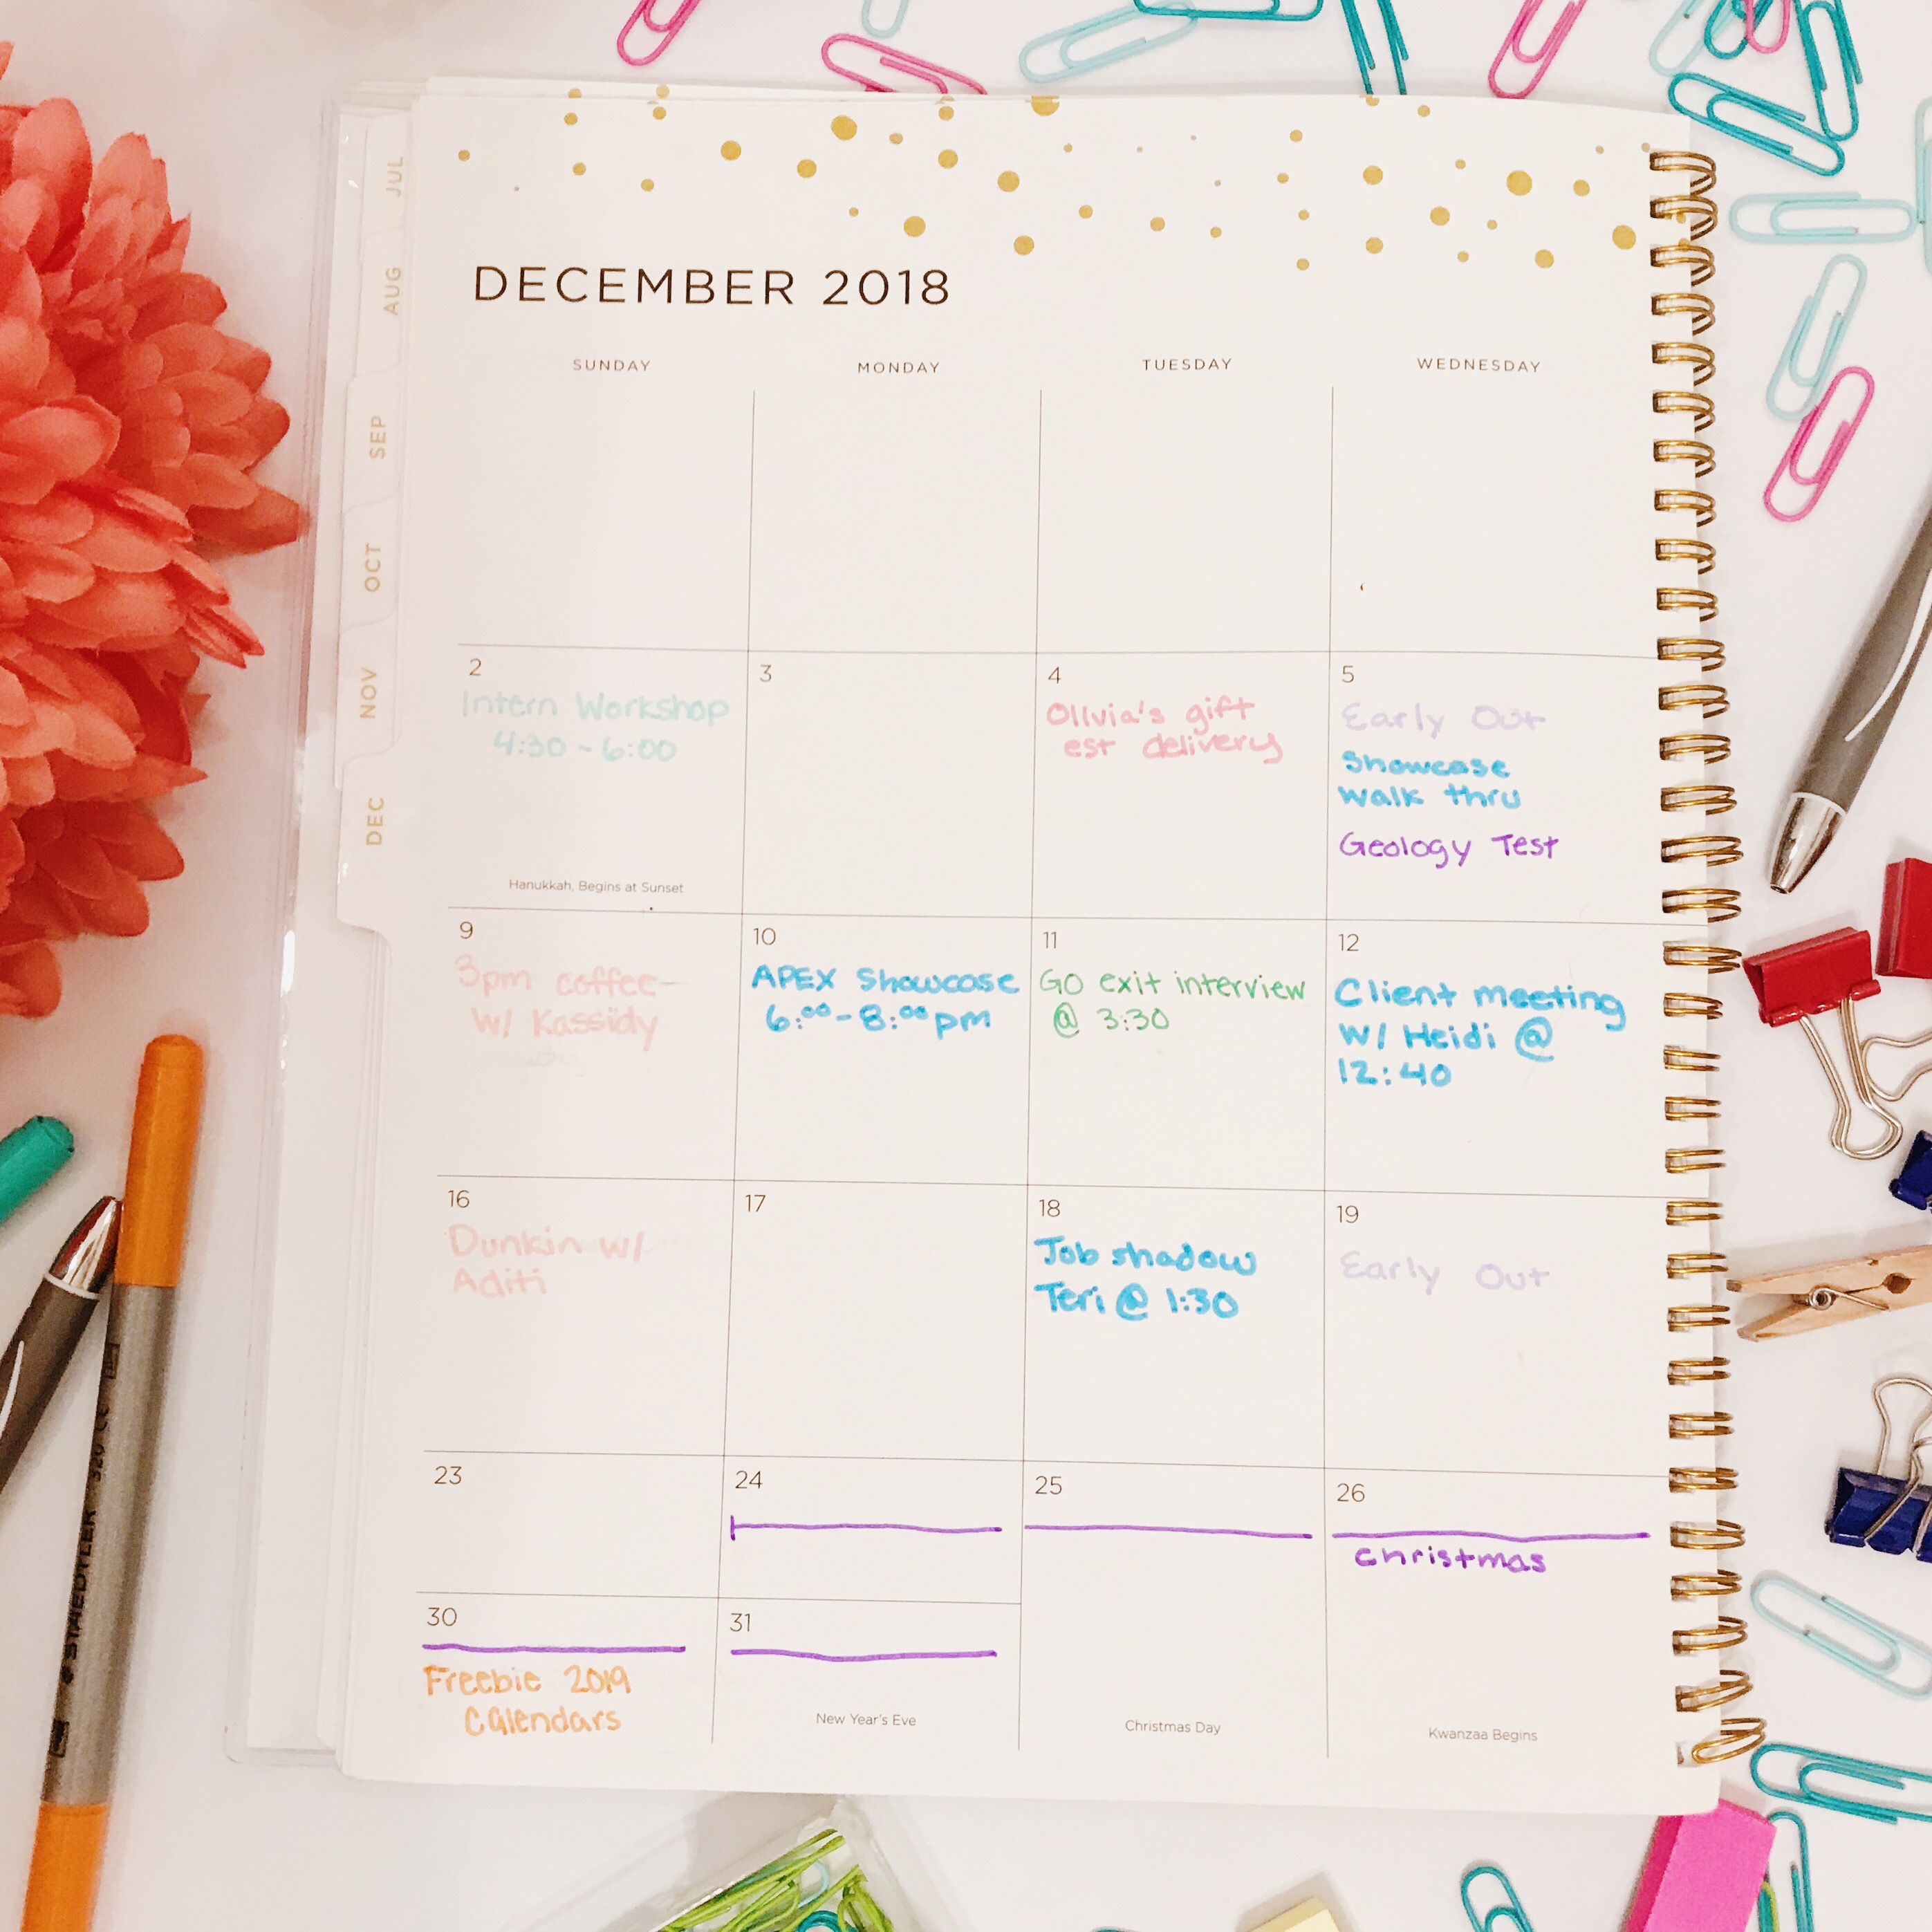 JUL
AUG
SEP
OCT
NOV
DEC
DECEMBER 2018
SUNDAY MONDAY TUESDAY WEDNESDAY
2
Intern Workshop
4:30 - 6:00
Hanukkah, Begins at Sunset
3
4
Olivia's gift
est delivery
5
Early Out
Showcase
walk thru
Geology Test
9
3pm coffee-
w/ Kassidy
10
APEX Showcase
6:00-8:00pm
11
GO exit interview
@ 3:30
12
Client meeting
w/ Heidi @
12:40
16
Dunkin w/
Aditi
17
18
Job shadow
Teri @ 1:30
19
Early Out
23
24
25
Christmas Day
26
christmas
Kwanzaa Begins
30
Freebie 2019
Calendars
31
New Year's Eve
STAEDTLER